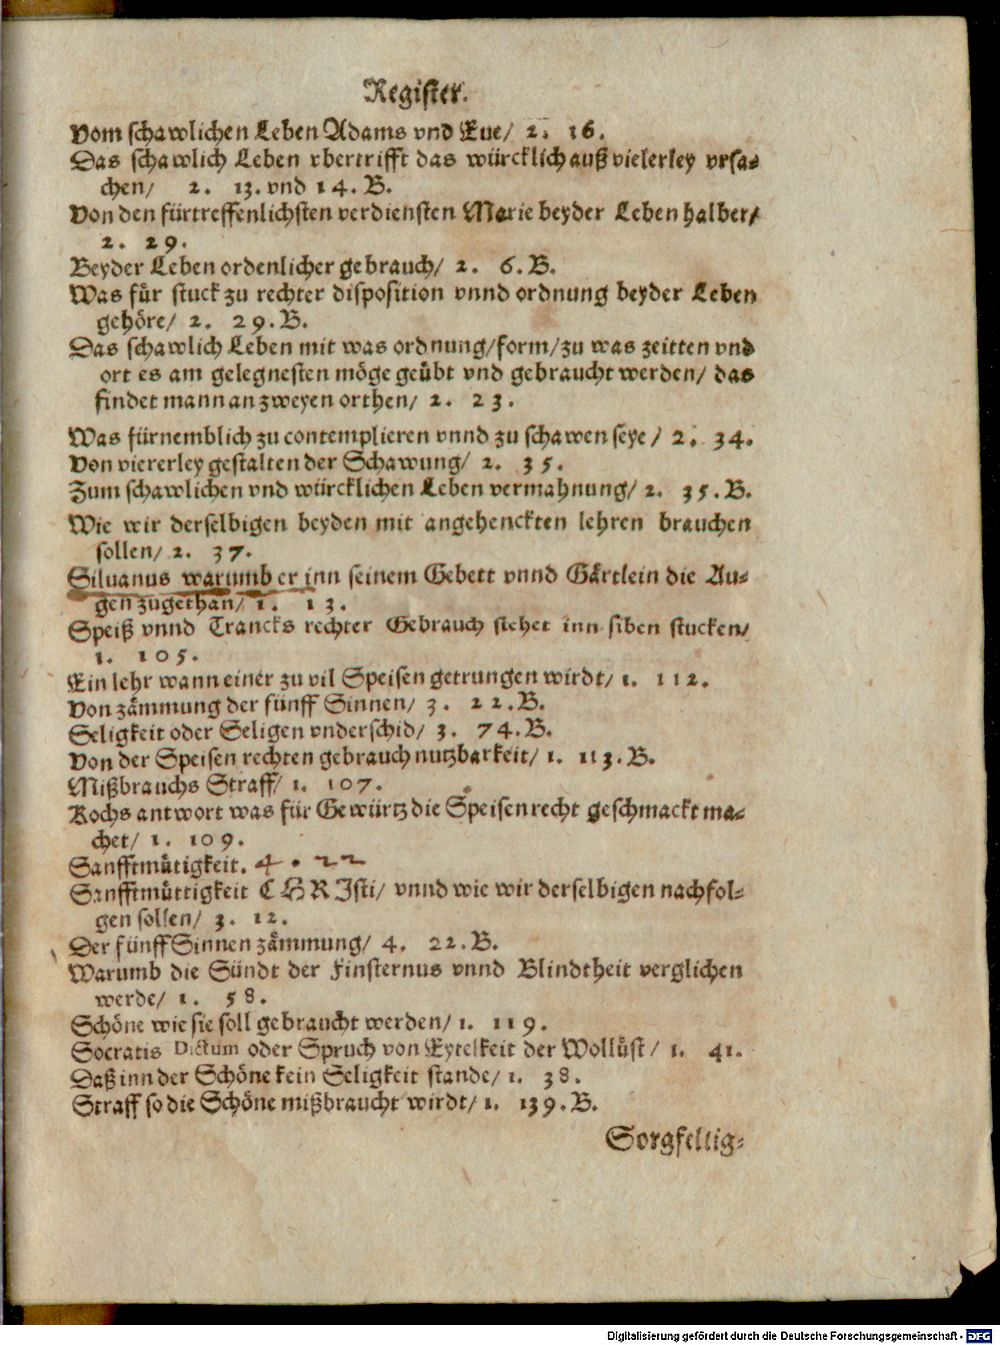 Register.
Vom schawlichen Leben Adams vnd Eue/ 2. 16.
Das schawlich Leben vbertrifft das würcklich auß vielerley vrsa-
chen/ 2. 13. vnd 14. B.
Von den fürtreffenlichsten verdiensten Marie beyder Leben halber/
2. 29.
Beyder Leben ordenlicher gebrauch/ 2. 6. B.
Was für stuck zu rechter disposition vnnd ordnung beyder Leben
gehöre/ 2. 29. B.
Das schawlich Leben mit was ordnung/form/zu was zeitten vnd
ort es am gelegnesten möge geübt vnd gebraucht werden/ das
findet mann an zweyen orthen/ 2. 23.
Was fürnemblich zu contemplieren vnnd zu schawen seye/ 2. 34.
Von viererley gestalten der Schawung/ 2. 35.
Zum schawlichen vnd würcklichen Leben vermahnung/ 2. 35. B.
Wie wir derselbigen beyden mit angehenckten lehren brauchen
sollen/ 2. 37.
Siluanus warumb er inn seinem Gebett vnnd Gärtlein die Au-
gen zugethan/ 1. 13.
Speiß vnnd Trancks rechter Gebrauch stehet inn siben stucken/
1. 105.
Ein lehr wann einer zu vil Speisen getrungen wirdt/ 1. 112.
Von zämmung der fünff Sinnen/ 3. 22. B.
Seligkeit oder Seligen vnderschid/ 3. 74. B.
Von der Speisen rechten gebrauch nutzbarkeit/ 1. 113. B.
Mißbrauchs Straff/ 1. 107.
Kochs antwort was für Gewürtz die Speisen recht geschmackt ma-
chet/ 1. 109.
Sanfftmütigkeit. 4. 22
Sanfftmüttigkeit CHRJsti/ vnnd wie wir derselbigen nachfol-
gen sollen/ 3. 12.
Der fünff Sinnen zämmung/ 4. 22. B.
Warumb die Sündt der Finsternus vnnd Blindtheit verglichen
werde/ 1. 58.
Schöne wie sie soll gebraucht werden/ 1. 119.
Socratis Dictum oder Spruch von Eytelkeit der Wollüst/ 1. 41.
Daß inn der Schöne kein Seligkeit stande/ 1. 38.
Straff so die Schöne mißbraucht wirdt/ 1. 139. B.
Sorgfellig-
Digitalisierung gefördert durch die Deutsche Forschungsgemeinschaft - DFG